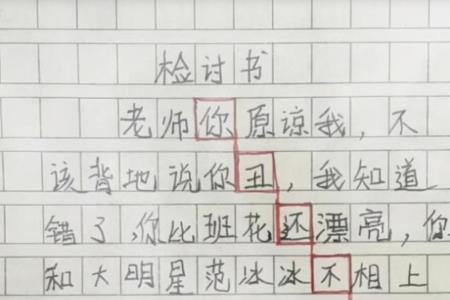 检讨书
老师你原谅我，不
该背地说你丑，我知道
错了，你比班花还漂亮，你
和大明星范冰冰不相上